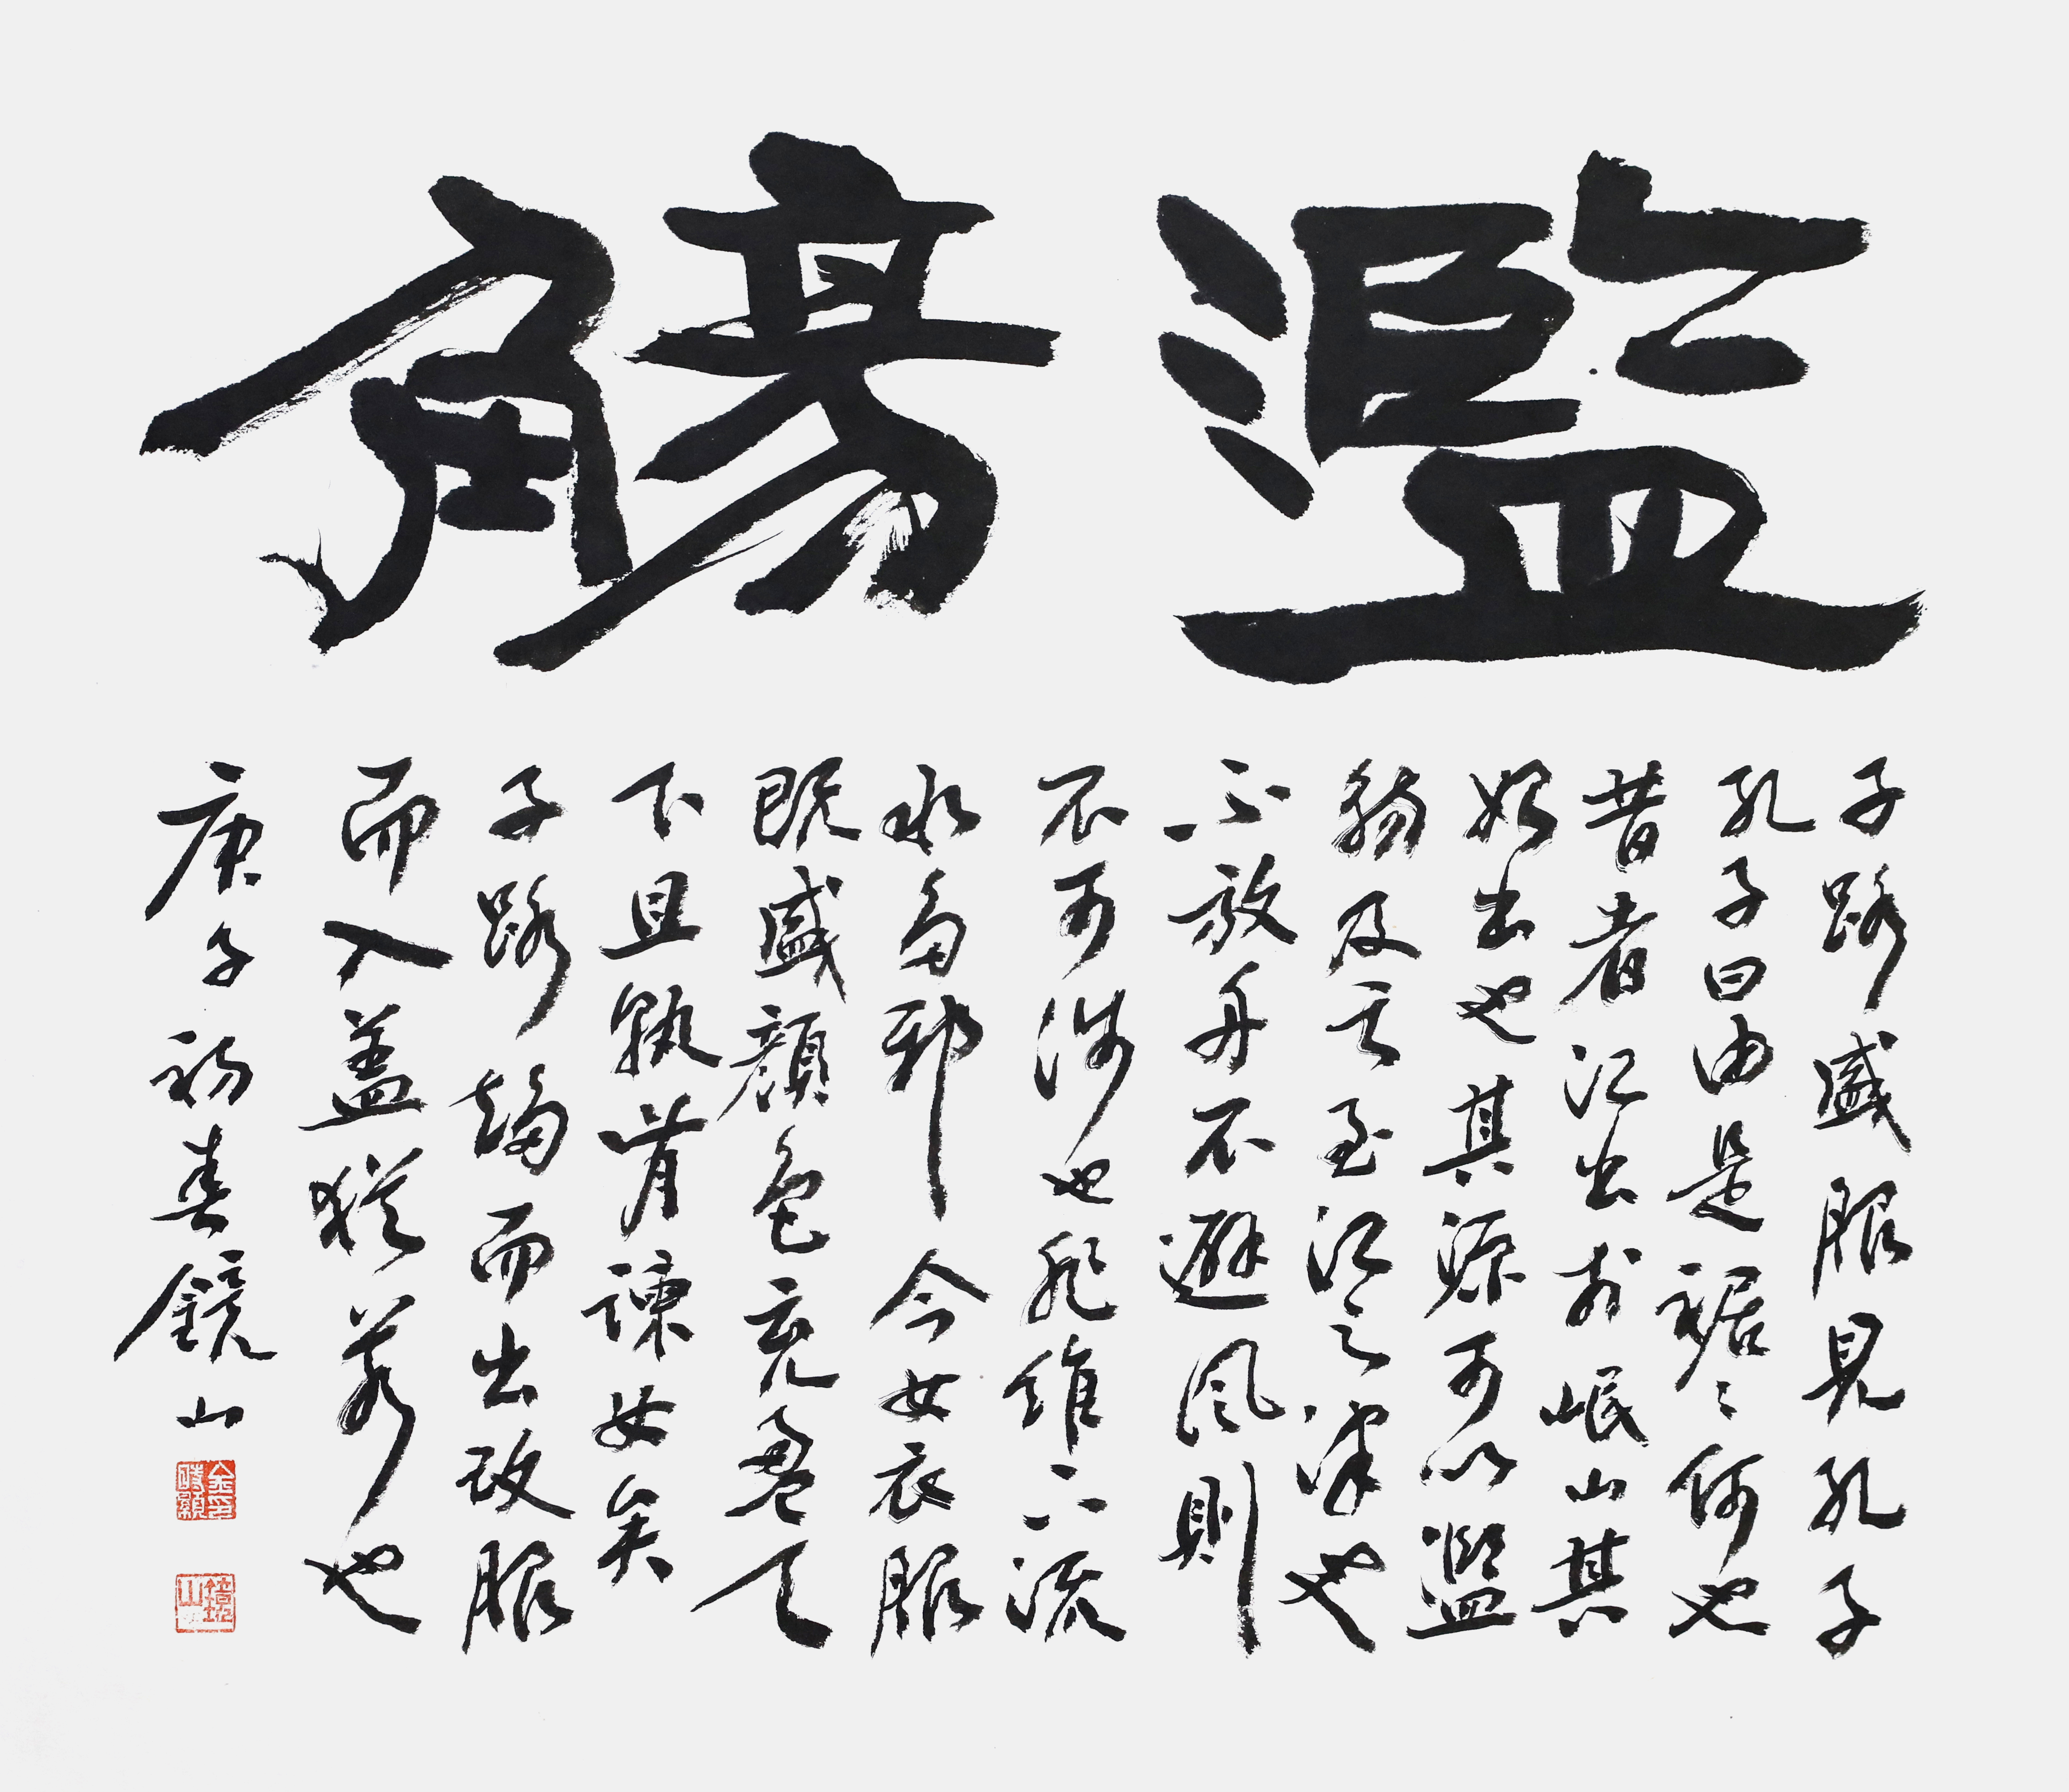 濫觴
子路盛服見孔子
孔子曰由是裾〻何也
昔者江出於岷山其
始出也其源可以濫
觴及其至江之津也
不放舟不避風則
不可涉也非維下流
水多邪今女衣服
既盛顏色充盈天
下且孰肯諫女矣
子路趨而出改服
而入盖猶若也
庚子初春鏡山
金印時顯
鏡山